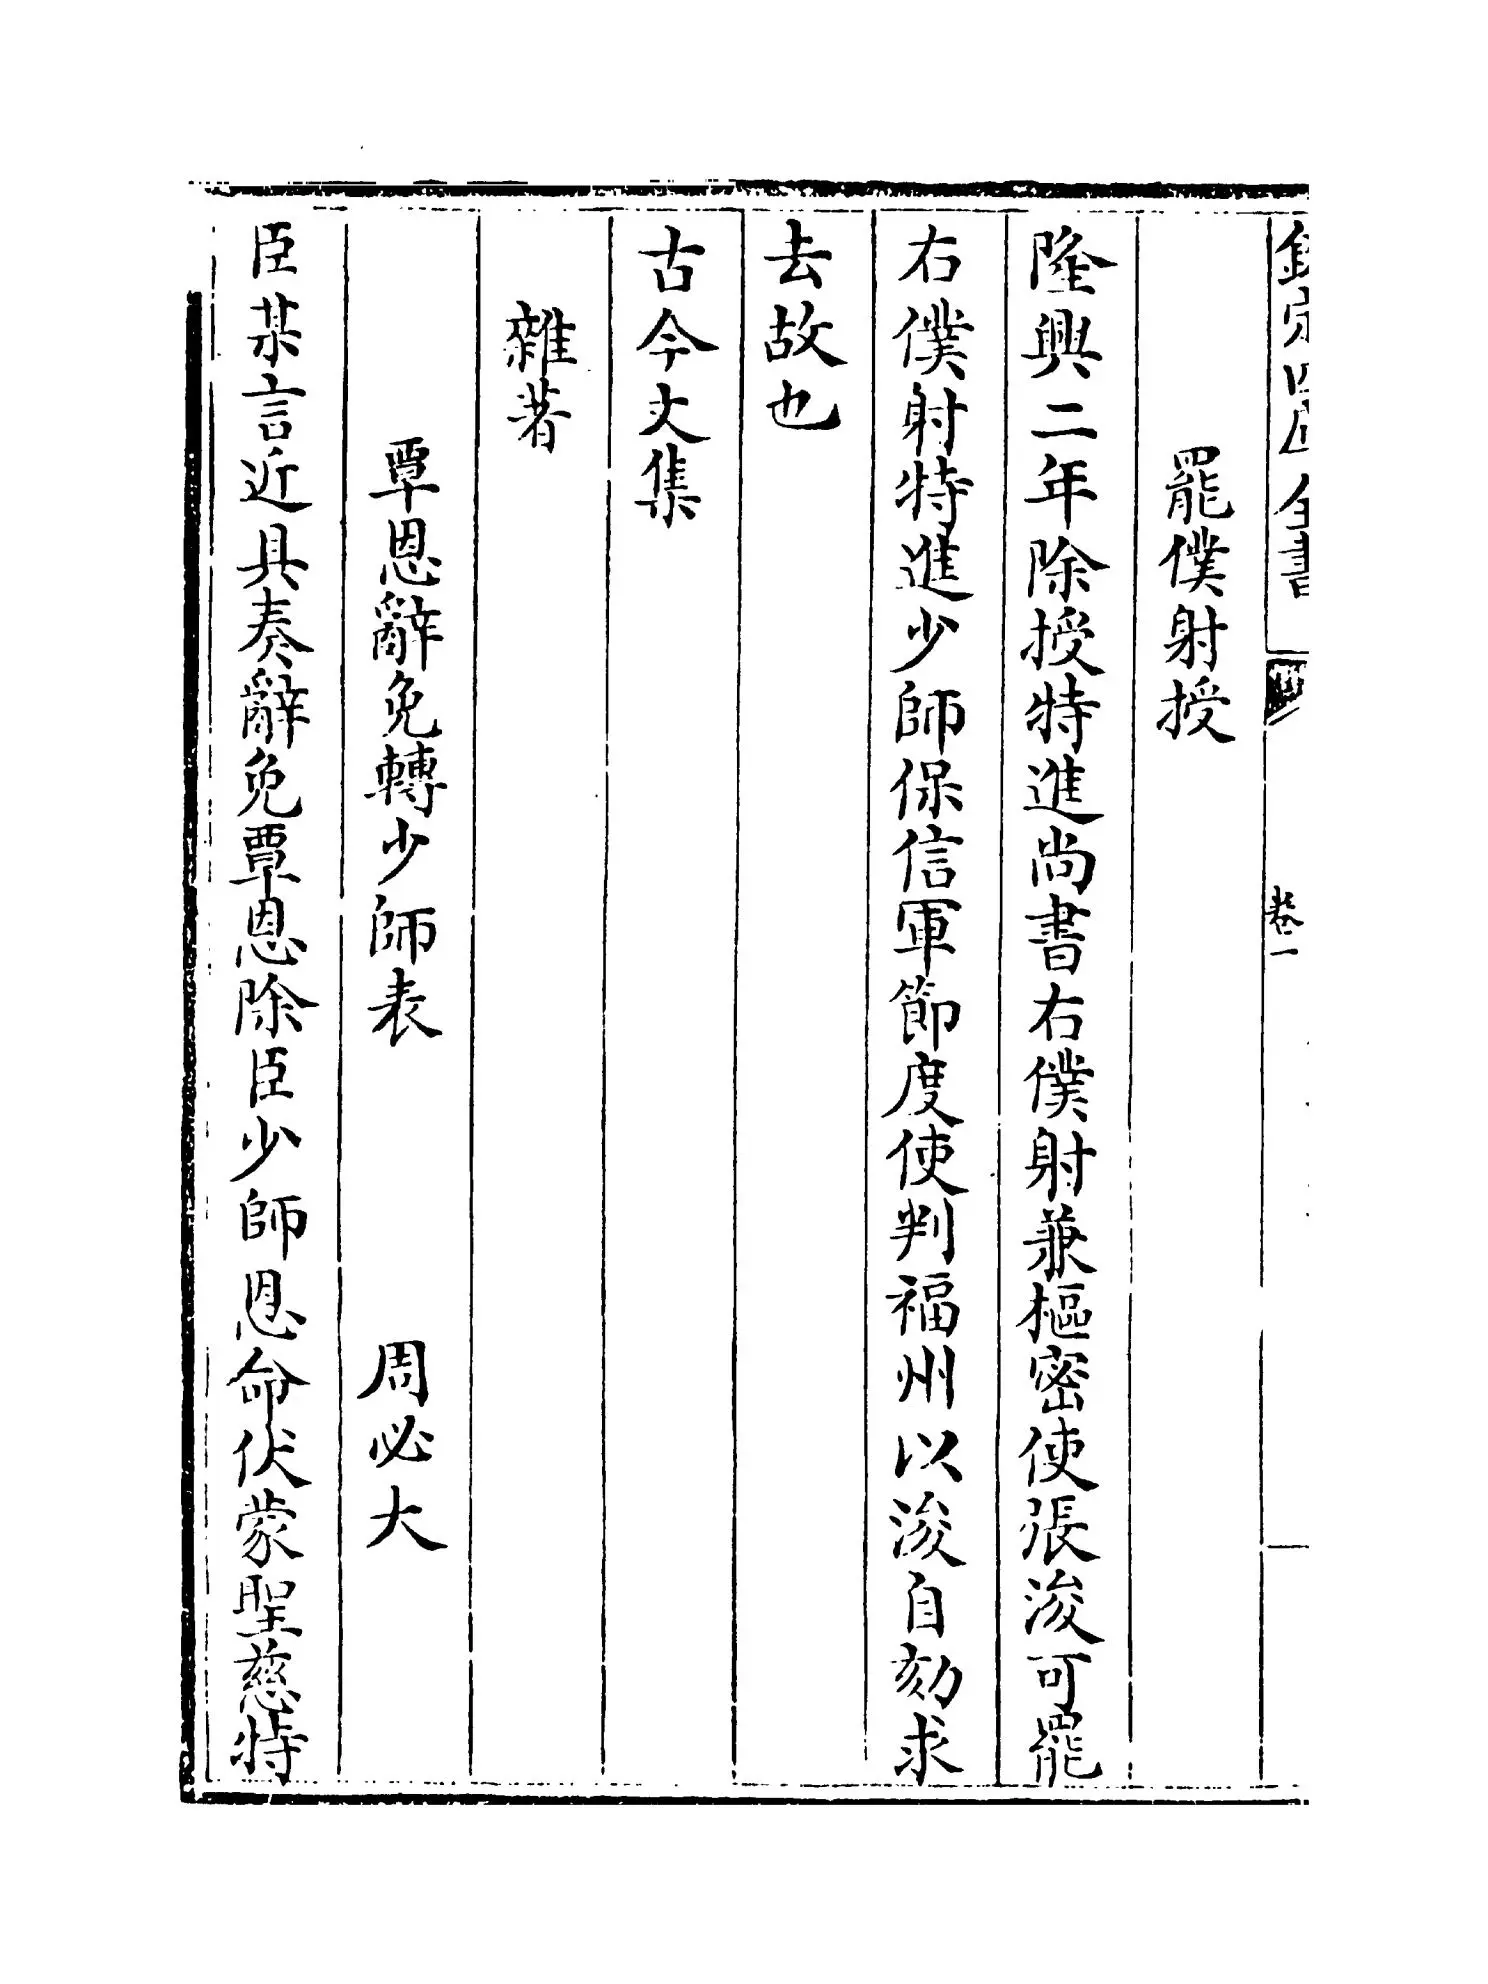 欽定四庫全書
卷一
罷僕射授
隆興二年除授特進尚書右僕射兼樞密使張浚可罷
右僕射特進少師保信軍節度使判福州以浚自劾求
去故也
古今文集
雜著
覃恩辭免轉少師表 周必大
臣某言近具奏辭免覃恩除臣少師恩命伏蒙聖慈特